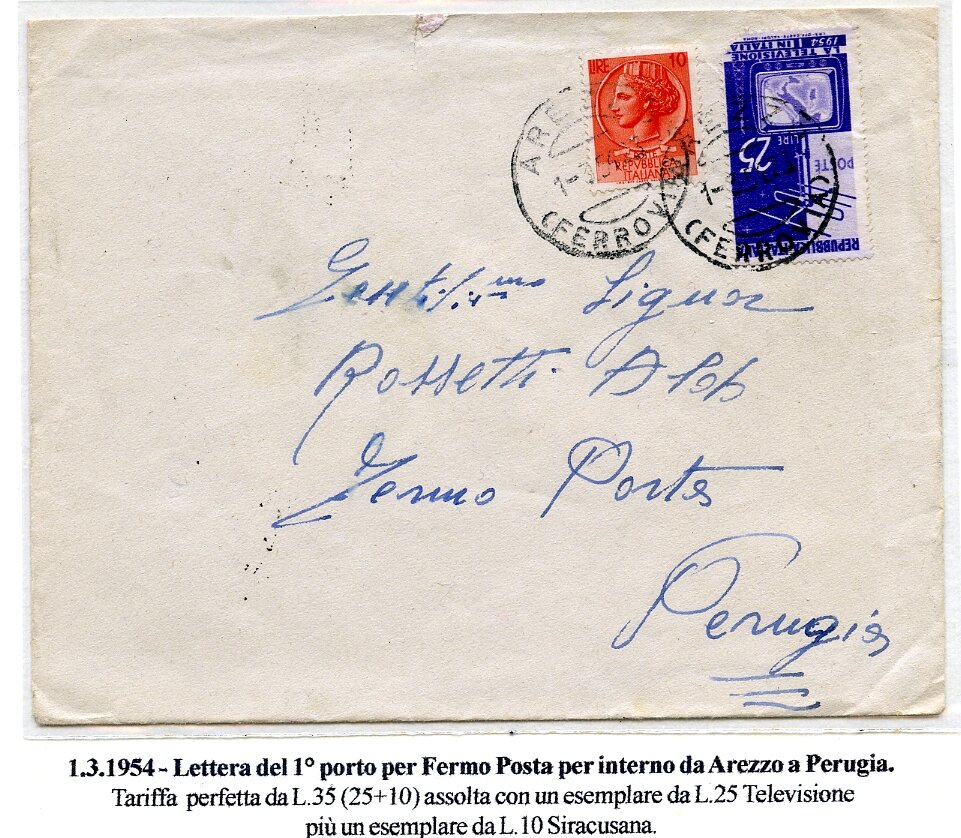 LIRE 10
POSTE
REPVBBLICA
ITALIANA
1954 LA TELEVISIONE IN ITALIA
LIRE 25
POSTE
REPUBBLICA ITALIANA
(FERROVIA)
(FERROVIA)
Signor
Rossetti
Fermo Posta
Perugia
1.3.1954 - Lettera del 1° porto per Fermo Posta per interno da Arezzo a Perugia.
Tariffa perfetta da L.35 (25+10) assolta con un esemplare da L.25 Televisione
più un esemplare da L.10 Siracusana.